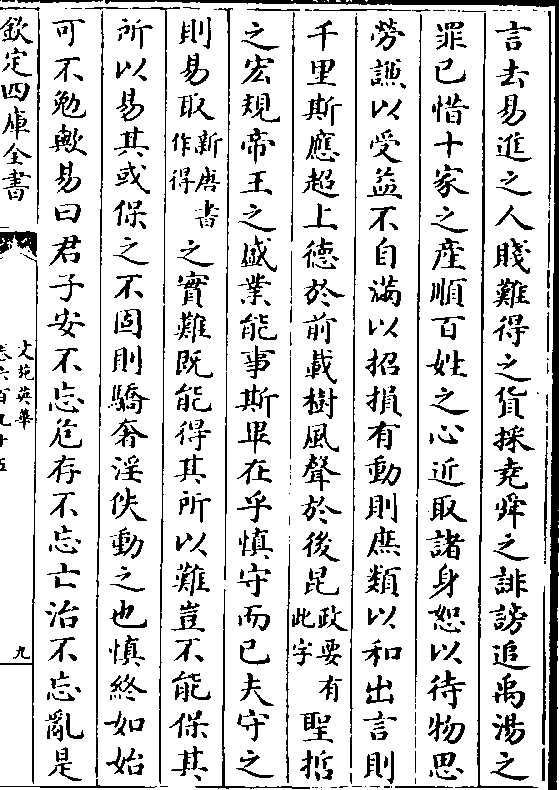 言去易進之人賤難得之貨採堯舜之誹謗追禹湯之
罪已惜十家之産順百姓之心近取諸身恕以待物思
勞謙以受益不自滿以招損有動則庶類以和出言則
千里斯應超上德於前載樹風聲於後昆政要有此字聖哲
之宏規帝王之盛業能事斯畢在乎慎守而已夫守之
則易取新唐書作得之實難既能得其所以難豈不能保其
所以易其或保之不固則驕奢淫佚動之也慎終如始
可不勉歟易曰君子安不忘危存不忘亡治不忘亂是
欽定四庫全書
文苑英華
卷六百九十五
九